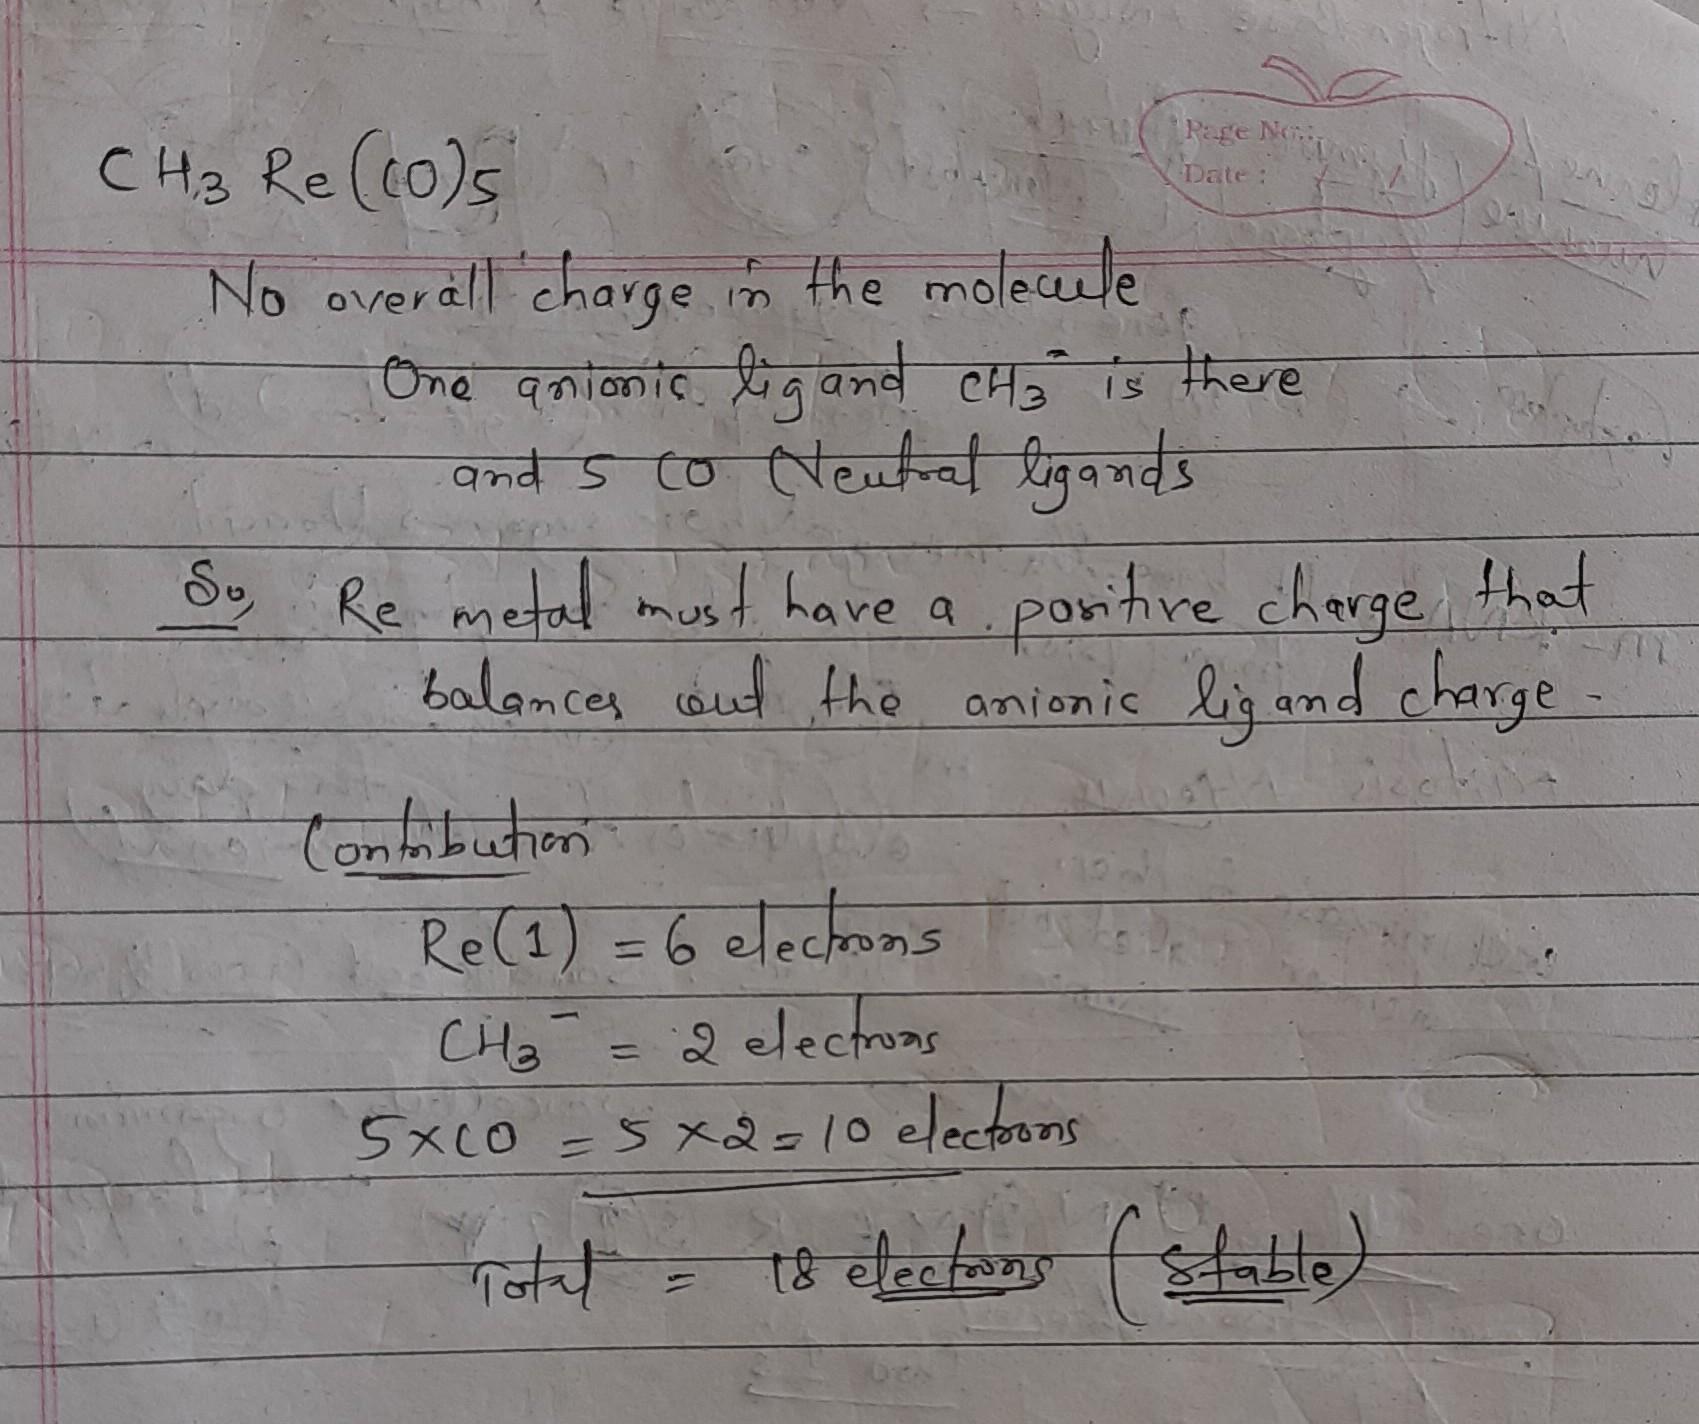 Page No.:
Date: / /
CH3 Re(CO)5
No overall charge in the molecule
One anionic ligand CH3⁻ is there
and 5 CO Neutral ligands
So, Re metal must have a positive charge that
balances out the anionic ligand charge.
Contribution
Re(1) = 6 electrons
CH3⁻ = 2 electrons
5×CO = 5×2 = 10 electrons
Total = 18 electrons (Stable)